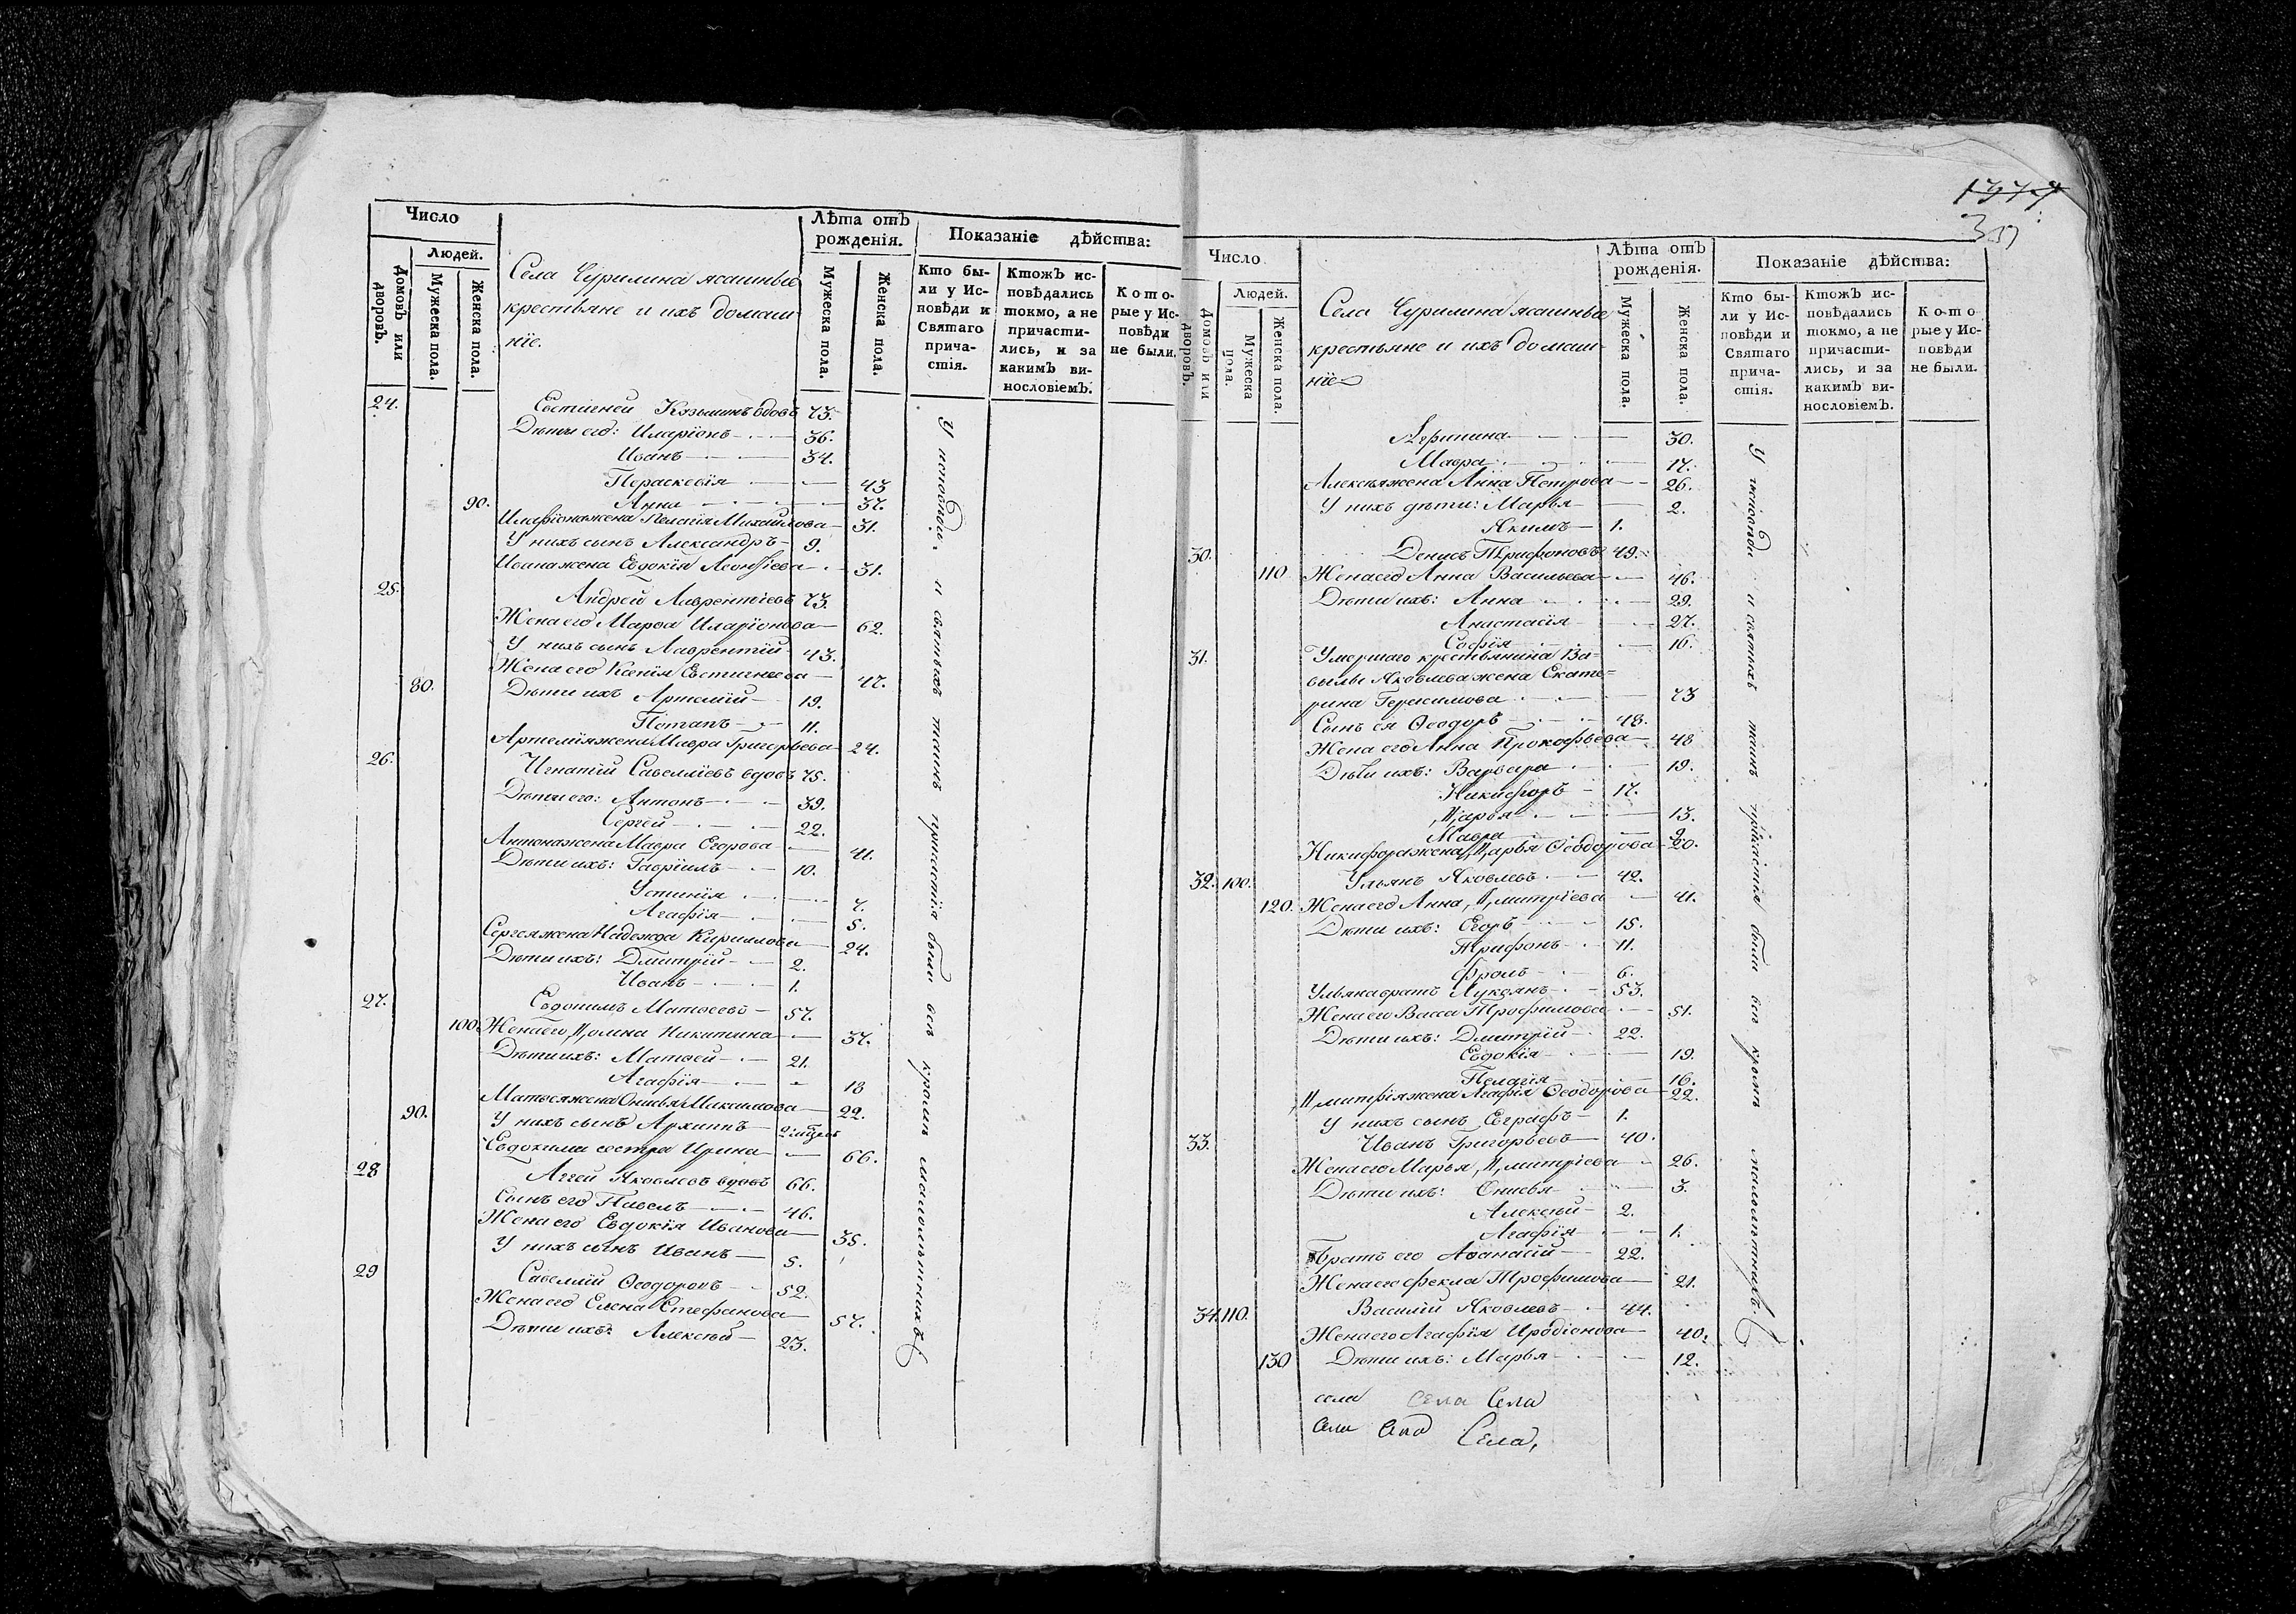 Число
Людей.
Домовъ или дворовъ.
Мужеска пола.
Женска пола.
Села Чурилина ясашные
крестьяне и ихъ домаш
ніе.
Лѣта отъ рожденія.
Мужеска пола.
Женска пола.
Показаніе дѣйства:
Кто бы-
ли у Ис-
повѣди и
Святаго
прича-
стія.
КтожЪ ис-
повѣдались
токмо, а не
причасти-
лись, и за
какимЪ ви-
нословіемЪ.
Кото-
рые у Ис-
повѣди
не были.
24. Евстигней Козьминъ вдовъ 73.
Дѣти его: Иларіонъ 36.
Иванъ 34.
Параскевія 43
90. Анна 37.
Иларіона жена Пелагія Михайлова 31.
У нихъ сынъ Александръ 9.
Ивана жена Евдокія Леонтіева 31.
25. Андрей Лаврентіевъ 73.
Жена его Марѳа Иларіонова 62.
У нихъ сынъ Лаврентій 43.
Жена его Ксенія Евстигнеева 47.
80. Дѣти ихъ Артемій 19.
Потапъ 11.
Артемія жена Мавра Григорьева 24.
26. Игнатій Савеліевъ вдовъ 75.
Дѣти его: Антонъ 39.
Сергей 22.
Антона жена Мавра Егорова 41.
Дѣти ихъ: Гавріилъ 10.
Устинія 7.
Агафія 5.
Сергея жена Надежда Кириллова 24.
Дѣти ихъ: Дмитрій 2.
Иванъ 1.
27. Евдокимъ Матвеевъ 57.
100. Жена его Домна Никитина 37.
Дѣти ихъ: Матвей 21.
Агафія 18
Матвея жена Онисья Максимова 22.
90. У нихъ сынъ Архипъ 2
Евдокима сестра Ирина 66.
28 Аггей Яковлевъ вдовъ 66.
Сынъ его Павелъ 46.
Жена его Евдокія Иванова 35.
У нихъ сынъ Иванъ 5.
29 Савелій Ѳеодоровъ 52.
Жена его Елена Стефанова 57.
Дѣти ихъ: Алексѣй 23.
У исповѣди и святыхъ таинъ причастія были всѣ кромѣ малолѣтнихъ
Число
Людей.
Домовъ или дворовъ.
Мужеска пола.
Женска пола.
Села Чурилина ясашные
крестьяне и ихъ домаш-
ніе
Лѣта отъ рожденія.
Мужеска пола.
Женска пола.
Показаніе дѣйства:
Кто бы-
ли у Ис-
повѣди и
Святаго
прича-
стія.
КтожЪ ис-
повѣдались
токмо, а не
причасти-
лись, и за
какимЪ ви-
нословіемЪ.
Кото
рые у Ис-
повѣди
не были.
Агрипина 30.
Мавра 17.
Алексѣя жена Анна Петрова 26.
У нихъ дѣти: Марья 2.
Якимъ 1.
30. Денисъ Трифоновъ 49.
110 Жена его Анна Васильева 46.
Дѣти ихъ: Анна 29.
Анастасія 27.
Софія 16.
31. Умершаго крестьянина Ва-
вилы Яковлева жена Екате-
рина Герасимова 73
Сынъ ея Ѳеодоръ 48.
Жена его Анна Прокофьева 48
Дѣти ихъ: Варвара 19.
Никифоръ 17.
Дарья 13.
Мавра 9.
Никифора жена Дарья Ѳеодорова 20.
32. 100. Ульянъ Яковлевъ 42.
120. Жена его Анна Дмитріева 41.
Дѣти ихъ: Егоръ 15.
Трифонъ 11.
Фролъ 6.
Ульяна братъ Лукоянъ 53.
Жена его Васса Трофимова 51.
Дѣти ихъ: Дмитрій 22.
Евдокія 19.
Пелагія 16.
Дмитрія жена Агафія Ѳеодорова 22.
У нихъ сынъ Евграфъ 1.
33. Иванъ Григорьевъ 40.
Жена его Марья Дмитріева 26.
Дѣти ихъ: Онисья 3.
Алексѣй 2.
Агафія 1.
Братъ его Аѳанасій 22.
Жена его Фекла Трофимова 21.
34. 110. Василій Яковлевъ 44.
Жена его Агафія Иродіонова 40.
130 Дѣти ихъ: Марья 12.
У исповѣди и святыхъ таинъ причастія были всѣ кромѣ малолѣтнихъ.
села Села Села
Села Села Села,